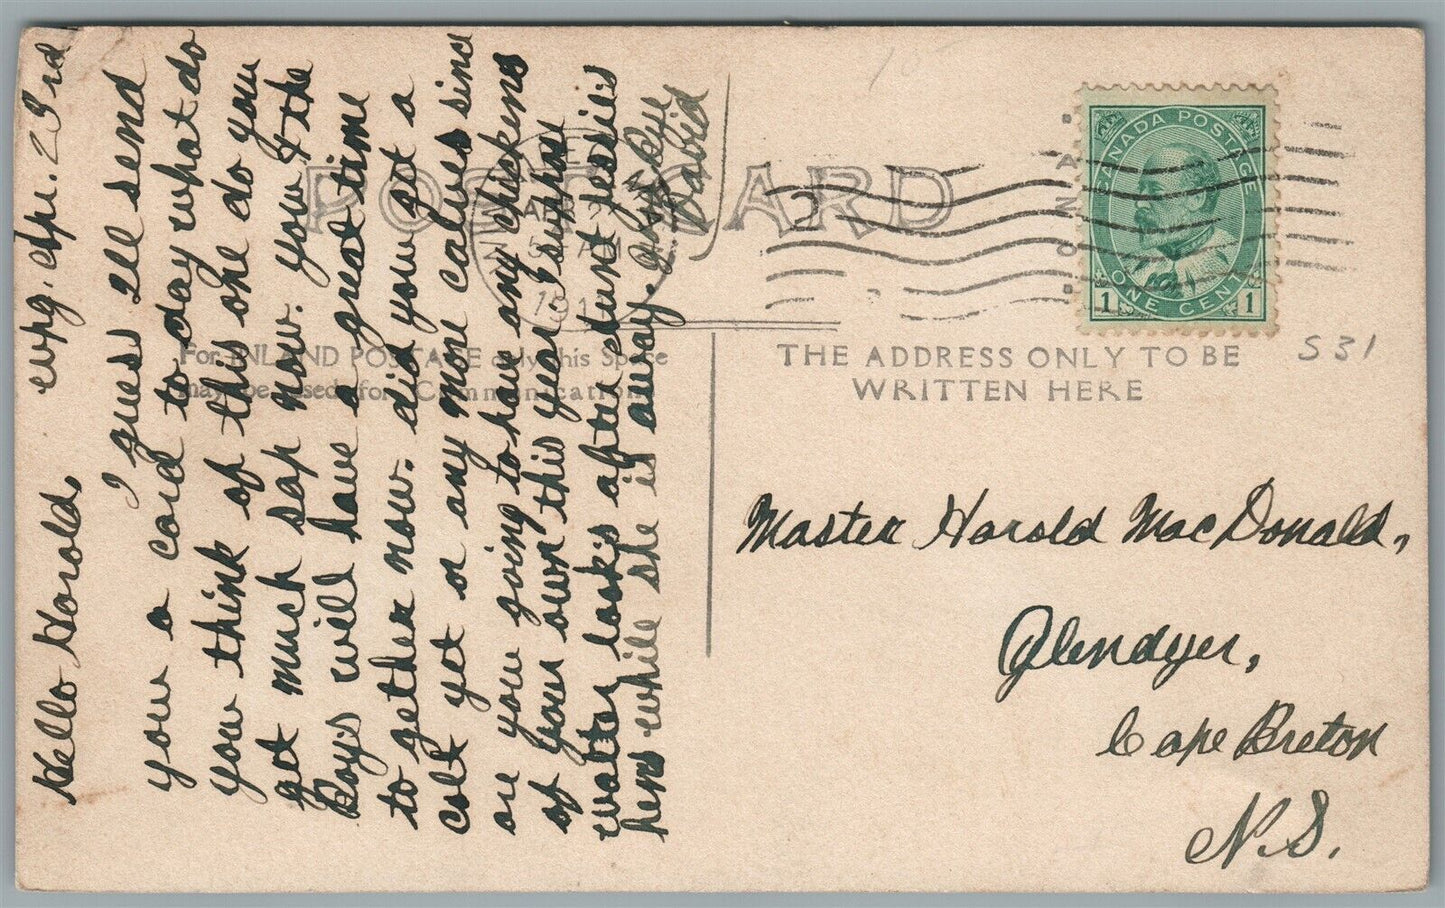 Wpg. Apr. 23rd
Hello Harold,
I guess Ill send
you a card to day what do
you think of this one do you
get much sap now. you & the
Boys will have a great time
to gether now. did you get a
colt yet or any more calves since
are you going to have any chickens
of your own this year I supose
walter looks after aunt jessies
hens while she is away.
David
POST CARD
For INLAND POSTAGE only this Space
may be used for Communication
THE ADDRESS ONLY TO BE
WRITTEN HERE
CANADA POSTAGE
1 ONE CENT 1
CANADA
2
AM
191
S31
Master Harold MacDonald,
Glendyer,
Cape Breton
N.S.